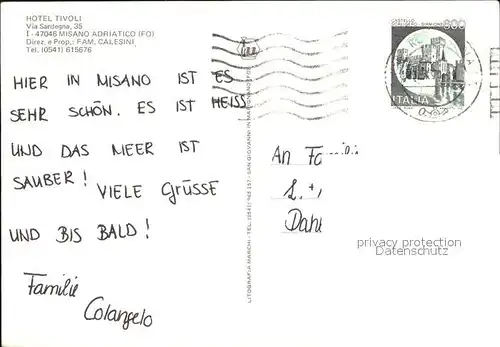 HOTEL TIVOLI
Via Sardegna, 35
I - 47046 MISANO ADRIATICO (FO)
Direz. e Prop.: FAM. CALESINI
Tel. (0541) 615676
HIER IN MISANO IST ES
SEHR SCHÖN. ES IST HEISS
UND DAS MEER IST
SAUBER! VIELE GRÜSSE
UND BIS BALD!
Familie
Colangelo
LITOGRAFIA MARCHI - TEL. (0541) 945 157 - SAN GIOVANNI IN MARIGNANO
800
ITALIA
An
privacy protection
Datenschutz